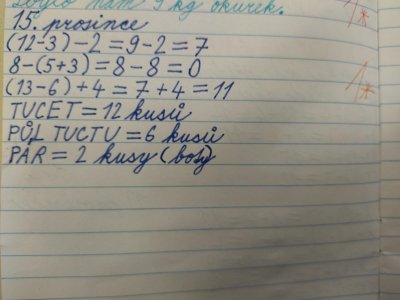 zbylo nám 9 kg okurek.
15. prosince
(12-3)-2=9-2=7
8-(5+3)=8-8=0
(13-6)+4=7+4=11
TUCET=12 kusů
PŮL TUCTU=6 kusů
PÁR=2 kusy (boty)
1*
1*